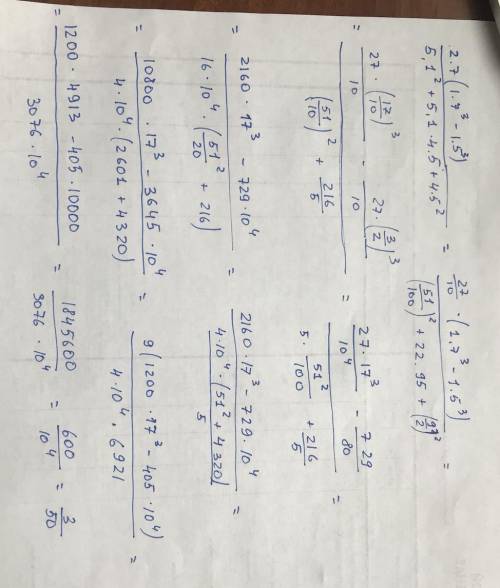 2.7(1.7³ - 1.5³) / 5,1² + 5,1·4.5 + 4.5² = 27/10 · (1.7³ - 1.5³) / (51/100)² + 22.95 + (9/2)² =
= 27/10 · (17/10)³ - 27/10 · (3/2)³ / (51/10)² + 216/5 = 27·17³/10⁴ - 729/80 / 5 · 51²/100 + 216/5 =
= 2160·17³ - 729·10⁴ / 16·10⁴ · (51²/20 + 216) = 2160·17³ - 729·10⁴ / 4·10⁴ · (51² + 4320)/5 =
= 10800 · 17³ - 3645 · 10⁴ / 4·10⁴ · (2601 + 4320) = 9(1200 · 17³ - 405 · 10⁴) / 4·10⁴ · 6921 =
= 1200 · 4913 - 405 · 10000 / 3076 · 10⁴ = 1845600 / 3076 · 10⁴ = 600/10⁴ = 3/50